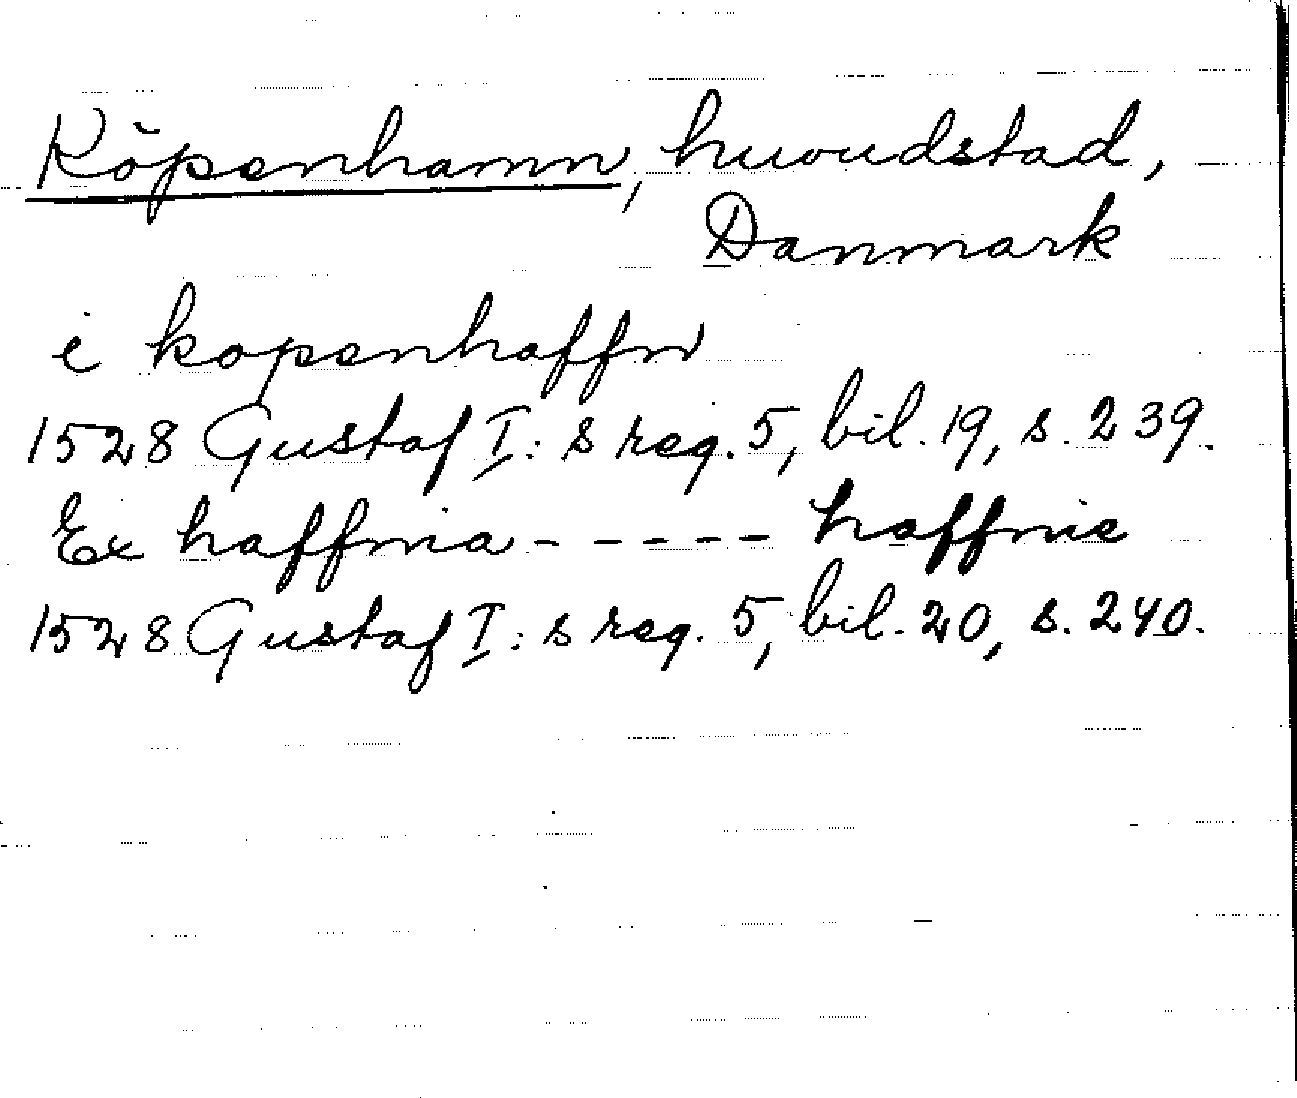 Köpenhamn, huvudstad,
Danmark
i kopenhaffn
1528 Gustaf I:s reg. 5, bil. 19, s. 239.
Ex haffnia - - - - - haffnie
1528 Gustaf I:s reg. 5, bil. 20, s. 240.